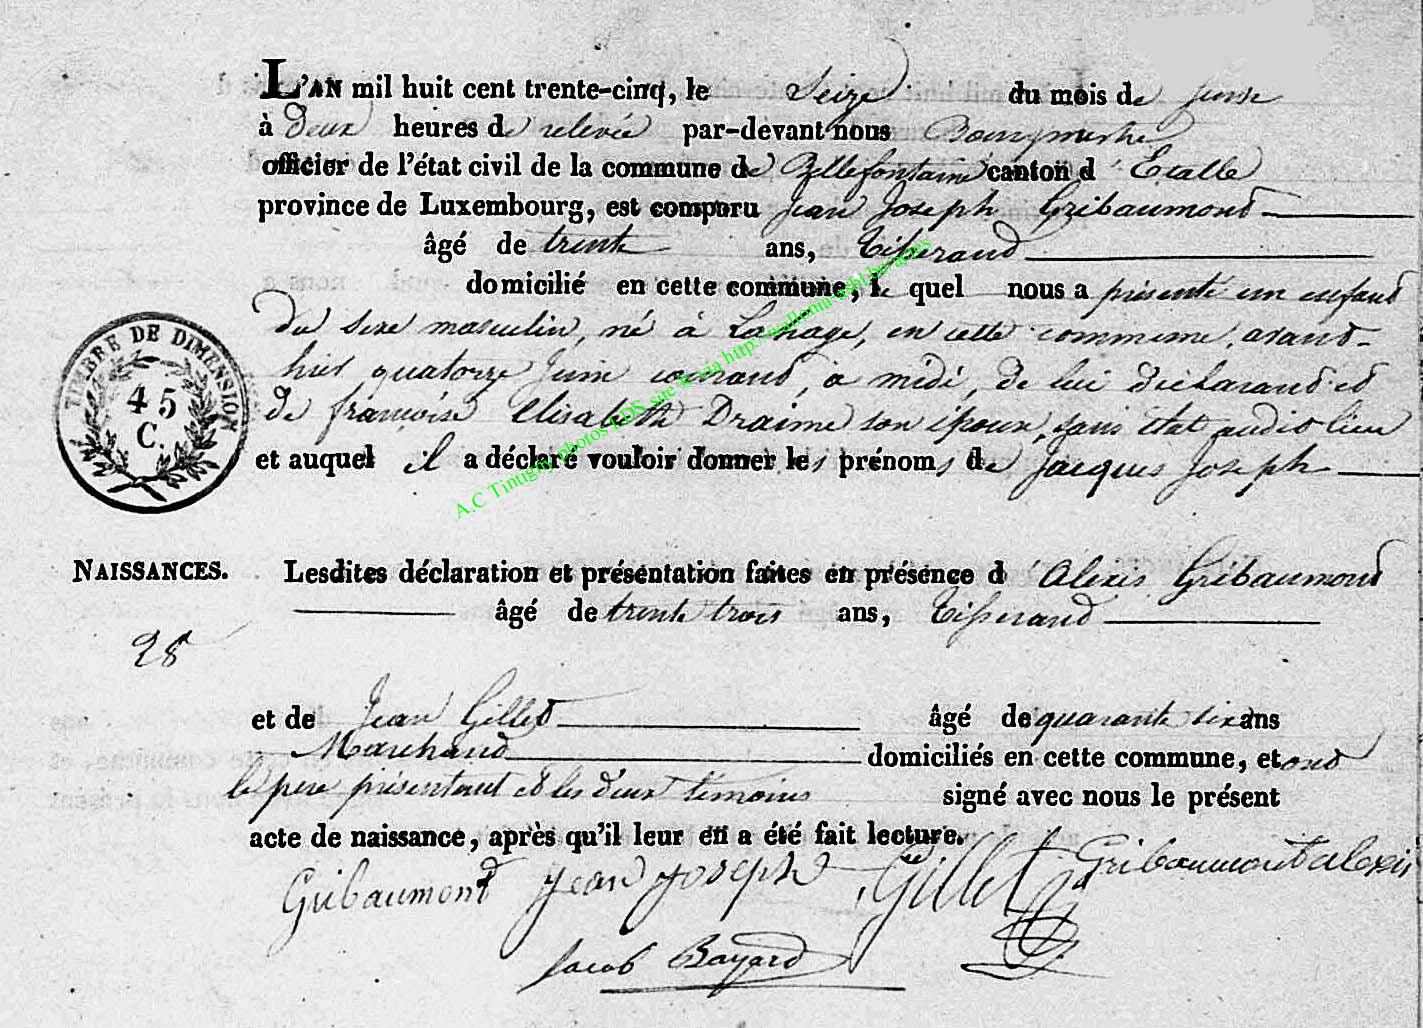 L'AN mil huit cent trente-cinq, le Seize du mois de Juin
à deux heures de relevée par-devant nous Bourgmestre
officier de l'état civil de la commune de Bellefontaine canton d'Etalle
province de Luxembourg, est comparu Jean Joseph Gribaumont
âgé de trente ans, Tisserand
domicilié en cette commune, le quel nous a présenté un enfant
du sexe masculin, né à Lahage, en cette commune, avant-
hier quatorze Juin courant, à midi, de lui déclarant et
de françoise Elisabeth Draime son épouse, sans état audit lieu
et auquel il a déclaré vouloir donner les prénoms de Jacques Joseph
TIMBRE DE DIMENSION
45
C.
A.C Tintigny photos EDS sue © via http://wallonia-asbl.be/actes
NAISSANCES.
28
Lesdites déclaration et présentation faites en présence d'Alexis Gribaumont
âgé de trente trois ans, Tisserand
et de Jean Gillet âgé de quarante six ans
Marchand domiciliés en cette commune, et ont
le père présentant et les deux témoins signé avec nous le présent
acte de naissance, après qu'il leur en a été fait lecture.
Gribaumont Jean Joseph Gillet Gribaumont alexis
Jacob Bayard